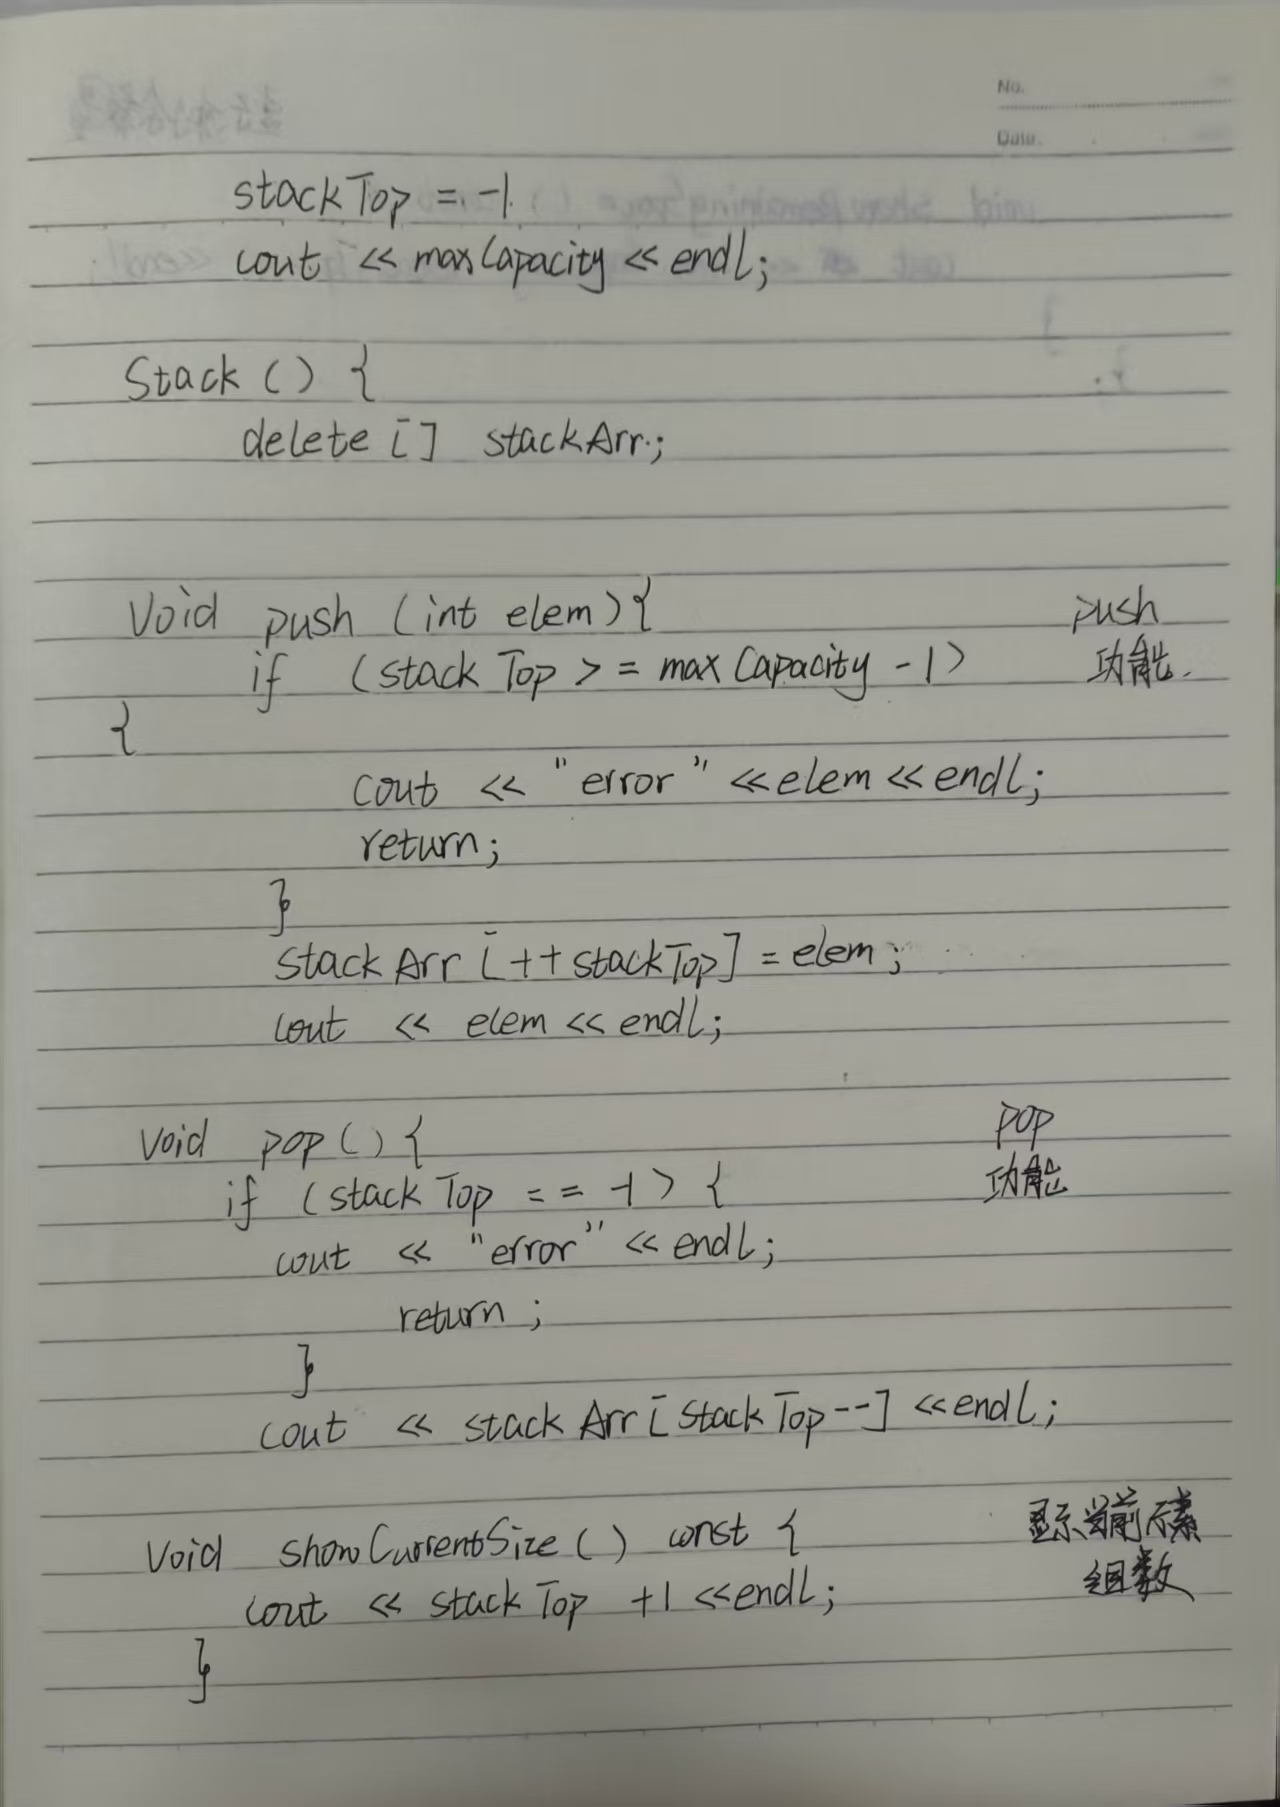 No.
Date.
stackTop = -1
cout << maxCapacity << endl;
Stack () {
delete [] stackArr;
void push (int elem) { push
if (stackTop >= maxCapacity - 1) 功能.
{
cout << "error" << elem << endl;
return;
}
stackArr [++stackTop] = elem;
cout << elem << endl;
void pop () { pop
if (stackTop == -1) { 功能
cout << "error" << endl;
return ;
}
cout << stackArr [stackTop--] << endl;
void showCurrentSize () const { 显示当前元素
cout << stackTop +1 << endl; 组数
}